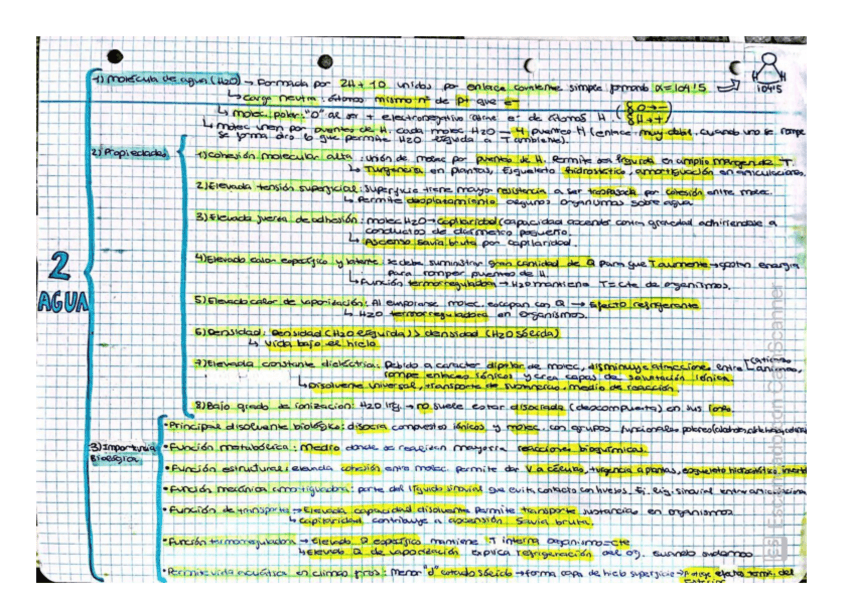 1) Molécula de agua (H2O) → Formada por 2H + 1O unidos por enlace covalente simple formando α = 104'5
104'5
↳ carga neutra: átomos mismo nº de p+ que e-
↳ molec. polar: "O" al ser + electronegativo atrae e- de átomos H. (δO → - δH → +)
↳ molec unen por puentes de H. cada molec H2O → 4 puentes H (enlace muy débil, cuando uno se rompe
se forma otro lo que permite H2O líquida a T ambiente).
2) Propiedades
1) Cohesión molecular alta: unión de molec por puentes de H. Permite ser líquida en amplio margen de T.
↳ Turgencia en plantas, esqueleto hidrostático, amortiguación en articulaciones.
2) Elevada tensión superficial: superficie tiene mayor resistencia a ser traspasada por cohesión entre molec.
↳ Permite desplazamiento algunos organismos sobre agua.
3) Elevada fuerza de adhesión: molec H2O → capilaridad (capacidad ascender contra gravedad adhiriéndose a
conductos de diámetro pequeño.
↳ Ascenso savia bruta por capilaridad.
4) Elevado calor específico y latente: se debe suministrar gran cantidad de Q para que T aumente → gastan energía
para romper puentes de H.
↳ Función termorreguladora → H2O mantiene T = cte de organismos.
2
AGUA
5) Elevado calor de vaporización: Al evaporarse molec. escapan con Q → efecto refrigerante
↳ H2O termorreguladora en organismos.
6) Densidad: Densidad (H2O líquida) > densidad (H2O sólida)
↳ vida bajo el hielo
7) Elevada constante dieléctrica: Debido a carácter dipolar de molec, disminuye atracciones entre cationes aniones,
rompe enlaces iónicos y crea capas de solvatación iónica.
↳ Disolvente universal, transporte de sustancias, medio de reacción.
8) Bajo grado de ionización: H2O líq. → no suele estar disociada (descompuesta) en sus iones.
3) Importancia
Biológica
• Principal disolvente biológico: disocia compuestos iónicos y molec. con grupos funcionales polares
• Función metabólica: Medio donde se realizan mayoría reacciones bioquímicas.
• Función estructural: elevada cohesión entre molec. permite dar V a células, turgencia a plantas, esqueleto hidrostático, invert
• Función mecánica amortiguadora: parte del líquido sinovial que evita contacto con huesos. Ej. líq. sinovial entre articulaciones
• Función de transporte → Elevada capacidad disolvente permite transporte sustancias en organismos
↳ capilaridad contribuye a ascensión savia bruta.
• Función termorreguladora → elevado Q específico mantiene T interna organismo = cte
↳ elevado Q de vaporización explica refrigeración del cuando sudamos
• Permite vida acuática en climas fríos: menor "d" estado sólido → forma capa de hielo superficie → Protege efectos term. del
exterior
Escaneado con CamScanner